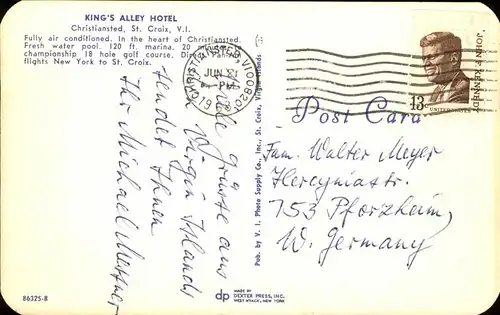 KING'S ALLEY HOTEL
Christiansted, St. Croix, V.I.
Fully air conditioned. In the heart of Christiansted.
Fresh water pool. 120 ft. marina. 20
championship 18 hole golf course.
flights New York to St. Croix.
CHRISTIANSTED, VI 00820
JUN 21
PM
JOHN F. KENNEDY
13c
UNITED STATES
Post Card
Viele Grüsse aus
Virgin Islands
sendet Ihnen
Ihr Michael
Pub. by V. I. Photo Supply Co., Inc., St. Croix, Virgin Islands
Fam. Walter Meyer
Hercyniastr.
753 Pforzheim,
W. Germany
86325-B
dp
MADE BY
DEXTER PRESS, INC.
WEST NYACK, NEW YORK